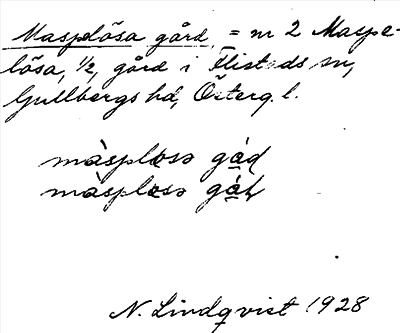 Masplösa gård, = nr 2 Maspe-
lösa, 1/2, gård i Flistads sn,
Gullbergs hd, Österg. l.
màsplosə gàd
màsplosə gàḷ
N. Lindqvist 1928